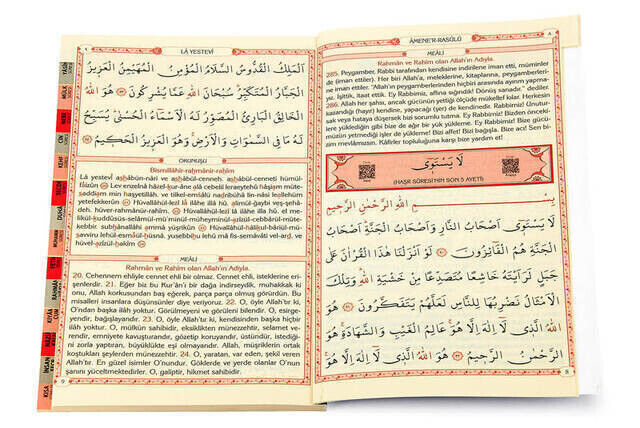 ÂMENE'R-RASÛLÜ
MEÂLİ
Rahman ve Rahim olan Allah'ın Adıyla.
285. Peygamber, Rabbi tarafından kendisine indirilene iman etti, müminler
de (iman ettiler). Her biri Allah'a, meleklerine, kitaplarına, peygamberleri-
ne iman ettiler. "Allah'ın peygamberlerinden hiçbiri arasında ayırım yapma-
yız. İşittik, itaat ettik. Ey Rabbimiz, affına sığındık! Dönüş sanadır." dediler.
286. Allah her şahsı, ancak gücünün yettiği ölçüde mükellef kılar. Herkesin
kazandığı (hayır) kendine, yapacağı (şer) de kendinedir. Rabbimiz! Unutur-
sak veya hataya düşersek bizi sorumlu tutma. Ey Rabbimiz! Bizden önceki-
lere yüklediğin gibi bize de ağır bir yük yükleme. Ey Rabbimiz! Bize gücü-
müzün yetmediği işler de yükleme! Bizi affet! Bizi bağışla. Bize acı! Sen bi-
zim mevlâmızsın. Kâfirler topluluğuna karşı bize yardım et!
لَا يَسْتَوِى
(HAŞR SÛRESİ'NİN SON 5 AYETİ)
بِسْمِ اللّٰهِ الرَّحْمٰنِ الرَّحِيمِ
لَا يَسْتَوِى اَصْحَابُ النَّارِ وَاَصْحَابُ الْجَنَّةِ اَصْحَابُ
الْجَنَّةِ هُمُ الْفَائِزُونَ لَوْ اَنْزَلْنَا هٰذَا الْقُرْاٰنَ عَلٰى
جَبَلٍ لَرَاَيْتَهُ خَاشِعًا مُتَصَدِّعًا مِنْ خَشْيَةِ اللّٰهِ وَتِلْكَ
الْاَمْثَالُ نَضْرِبُهَا لِلنَّاسِ لَعَلَّهُمْ يَتَفَكَّرُونَ هُوَ
اللّٰهُ الَّذِى لَا اِلٰهَ اِلَّا هُوَ عَالِمُ الْغَيْبِ وَالشَّهَادَةِ هُوَ
الرَّحْمٰنُ الرَّحِيمُ هُوَ اللّٰهُ الَّذِى لَا اِلٰهَ اِلَّا هُوَ
8
LÂ YESTEVÎ
اَلْمَلِكُ الْقُدُّوسُ السَّلَامُ الْمُؤْمِنُ الْمُهَيْمِنُ الْعَزِيزُ
الْجَبَّارُ الْمُتَكَبِّرُ سُبْحَانَ اللّٰهِ عَمَّا يُشْرِكُونَ هُوَ اللّٰهُ
الْخَالِقُ الْبَارِئُ الْمُصَوِّرُ لَهُ الْاَسْمَاءُ الْحُسْنٰى يُسَبِّحُ
لَهُ مَا فِى السَّمٰوَاتِ وَالْاَرْضِ وَهُوَ الْعَزِيزُ الْحَكِيمُ
OKUNUŞU
Bismillâhir-rahmânir-rahîm
Lâ yestevî ashâbün-nâri ve ashâbül-cenneh. ashâbül-cenneti hümül-
fâizûn Lev enzelnâ hâzel-kur-âne alâ cebelil leraeytehû hâşiam müte-
saddiam min haşyetillâh. ve tilkel-emsâlü nadribühâ lin-nâsi leallehüm
yetefekkerûn Hüvallâhül-lezî lâ ilâhe illâ hû. alimül-ğaybi veş-şehâ-
deh. hüver-rahmânür-rahîm. Hüvallâhül-lezî lâ ilâhe illâ hû. el me-
likül-kuddûsüs-selâmül-mü'minül-müheyminül-azîzül-cebbârul-müte-
kebbir. sübhânallâhi ammâ yüşrikûn Hüvallâhül-hâlikul-bâriül-mü-
savviru lehül-esmâül-hüsnâ. yusebbihu lehû mâ fis-semâvâti vel-ard, ve
hüvel-azîzul-hakîm
MEÂLİ
Rahman ve Rahim olan Allah'ın Adıyla.
20. Cehennem ehliyle cennet ehli bir olmaz. Cennet ehli, isteklerine eri-
şenlerdir. 21. Eğer biz bu Kur'ân'ı bir dağa indirseydik, muhakkak ki
onu, Allah korkusundan baş eğerek, parça parça olmuş görürdün. Bu
misalleri insanlara düşünsünler diye veriyoruz. 22. O, öyle Allah'tır ki,
O'ndan başka ilâh yoktur. Görülmeyeni ve görüleni bilendir. O, esirge-
yendir, bağışlayandır. 23. O, öyle Allah'tır ki, kendisinden başka hiçbir
ilâh yoktur. O, mülkün sahibidir, eksiklikten münezzehtir, selamet ve-
rendir, emniyete kavuşturandır, gözetip koruyandır, üstündür, istediği-
ni zorla yaptıran, büyüklükte eşi olmayandır. Allah, müşriklerin ortak
koştukları şeylerden münezzehtir. 24. O, yaratan, var eden, şekil veren
Allah'tır. En güzel isimler O'nundur. Göklerde ve yerde olanlar O'nun
şanını yüceltmektedirler. O, galiptir, hikmet sahibidir.
9
YÂSÎN
MÜLK
NEBE
CİN
KEHF
DUHÂ
RAHMÂN
İNSAN
KISA